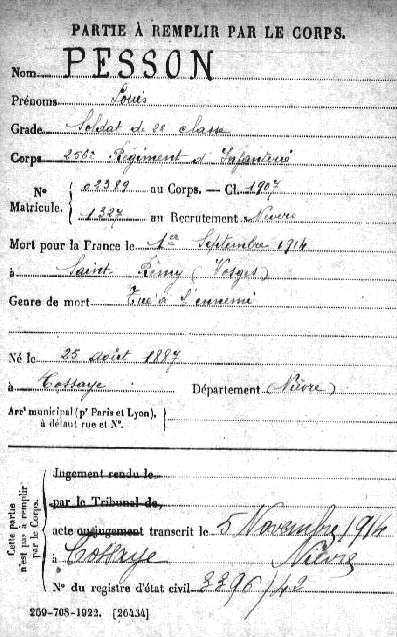 PARTIE À REMPLIR PAR LE CORPS.
Nom PESSON
Prénoms Louis
Grade Soldat de 2e classe
Corps 256e Régiment d'Infanterie
No Matricule. { 02389 au Corps. — Cl. 1907
1327 au Recrutement Nièvre
Mort pour la France le 1er Septembre 1914
à Saint-Rémy (Vosges)
Genre de mort Tué à l'ennemi
Né le 25 août 1887
à Cossaye Département (Nièvre)
Arrt municipal (pr Paris et Lyon), à défaut rue et No.
Cette partie n'est pas à remplir par le Corps.
Jugement rendu le
par le Tribunal de
acte ou jugement transcrit le 5 Novembre 1914
à Cossaye Nièvre
No du registre d'état civil 8396/42
269-708-1922. [26434]